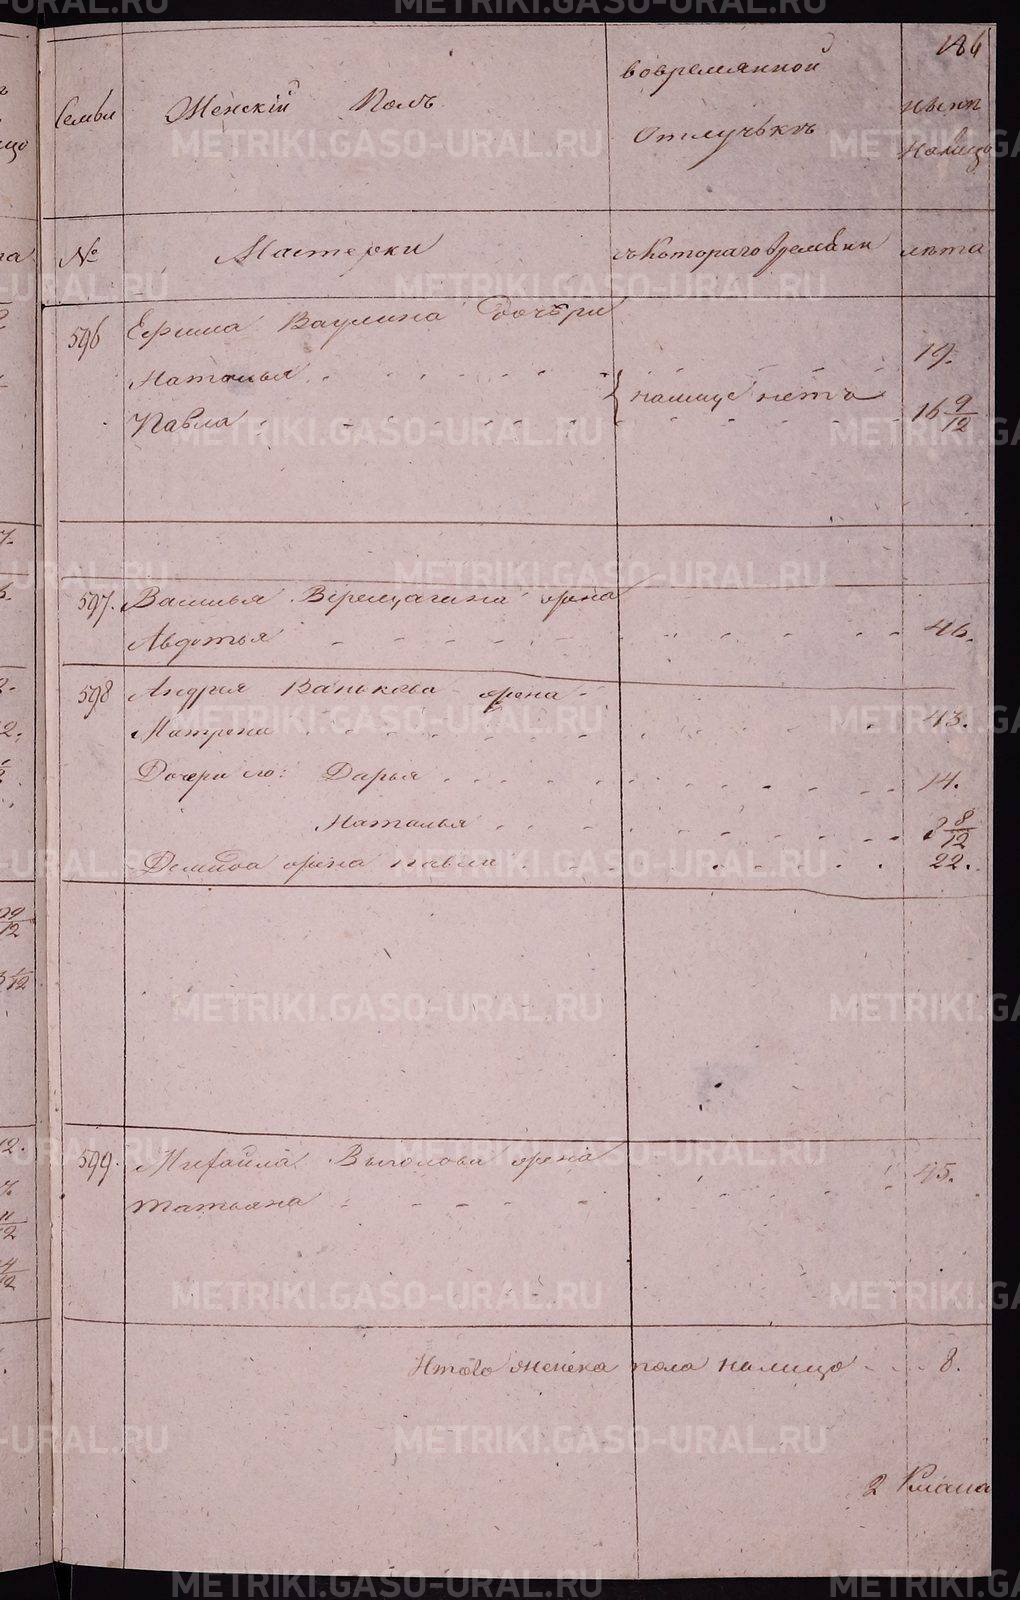 186
Семьи Женскій Полъ вовремянной Отлучькѣ нынѣ Налицо
№ Мастерки съ Котораго времѣни лѣта
596 Ефима Ваулина дочѣри
Наталья 19.
налице нетъ
Павла 16 9/12
597. Василья Верещагина жена
Авдотья 46.
598 Андрея Ванькова жена
Матрена 43.
Дочери его: Дарья 14.
Наталья 8/12
Демида жена павла 22.
599. Михайла жена
татьяна 45.
Итого женска пола налицо 8.
2 Класа
METRIKI.GASO-URAL.RU